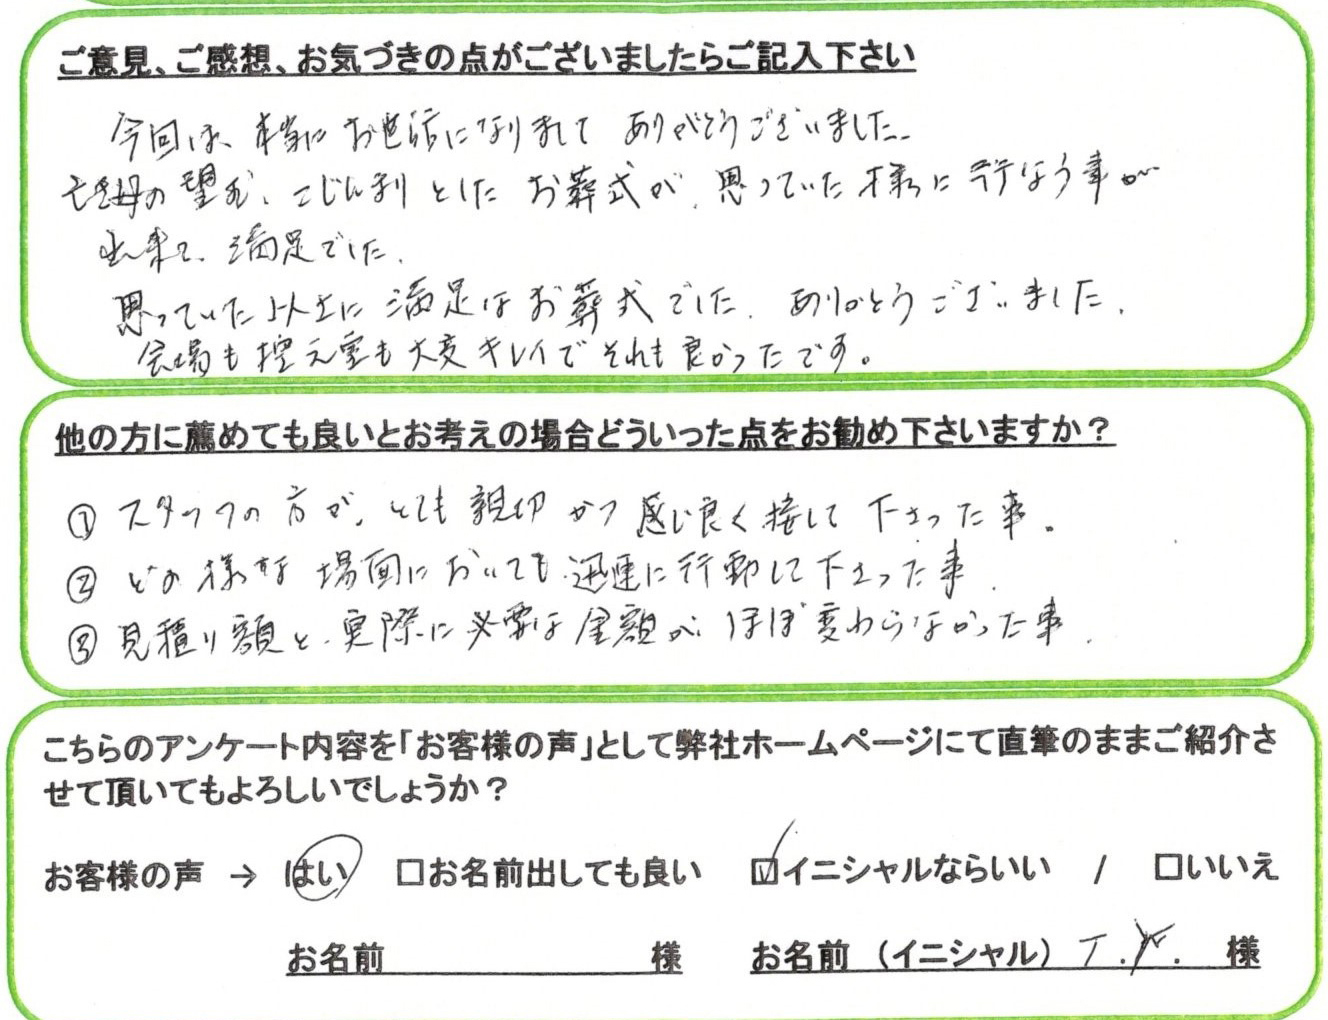 ご意見、ご感想、お気づきの点がございましたらご記入下さい
今回は、本当にお世話になりまして ありがとうございました。
亡き母の望む、こじんまりとした お葬式が、思っていた様に行なう事が
出来て、満足でした。
思っていた以上に満足なお葬式でした。ありがとうございました。
会場も控え室も大変キレイでそれも良かったです。
他の方に薦めても良いとお考えの場合どういった点をお勧め下さいますか？
① スタッフの方が、とても親切かつ感じ良く接して下さった事。
② どの様な場面においても、迅速に行動して下さった事。
③ 見積り額と、実際に必要な金額が、ほぼ変わらなかった事。
こちらのアンケート内容を「お客様の声」として弊社ホームページにて直筆のままご紹介さ
せて頂いてもよろしいでしょうか？
お客様の声 → はい □お名前出しても良い ☑イニシャルならいい / □いいえ
お名前 様 お名前（イニシャル） T.Y. 様